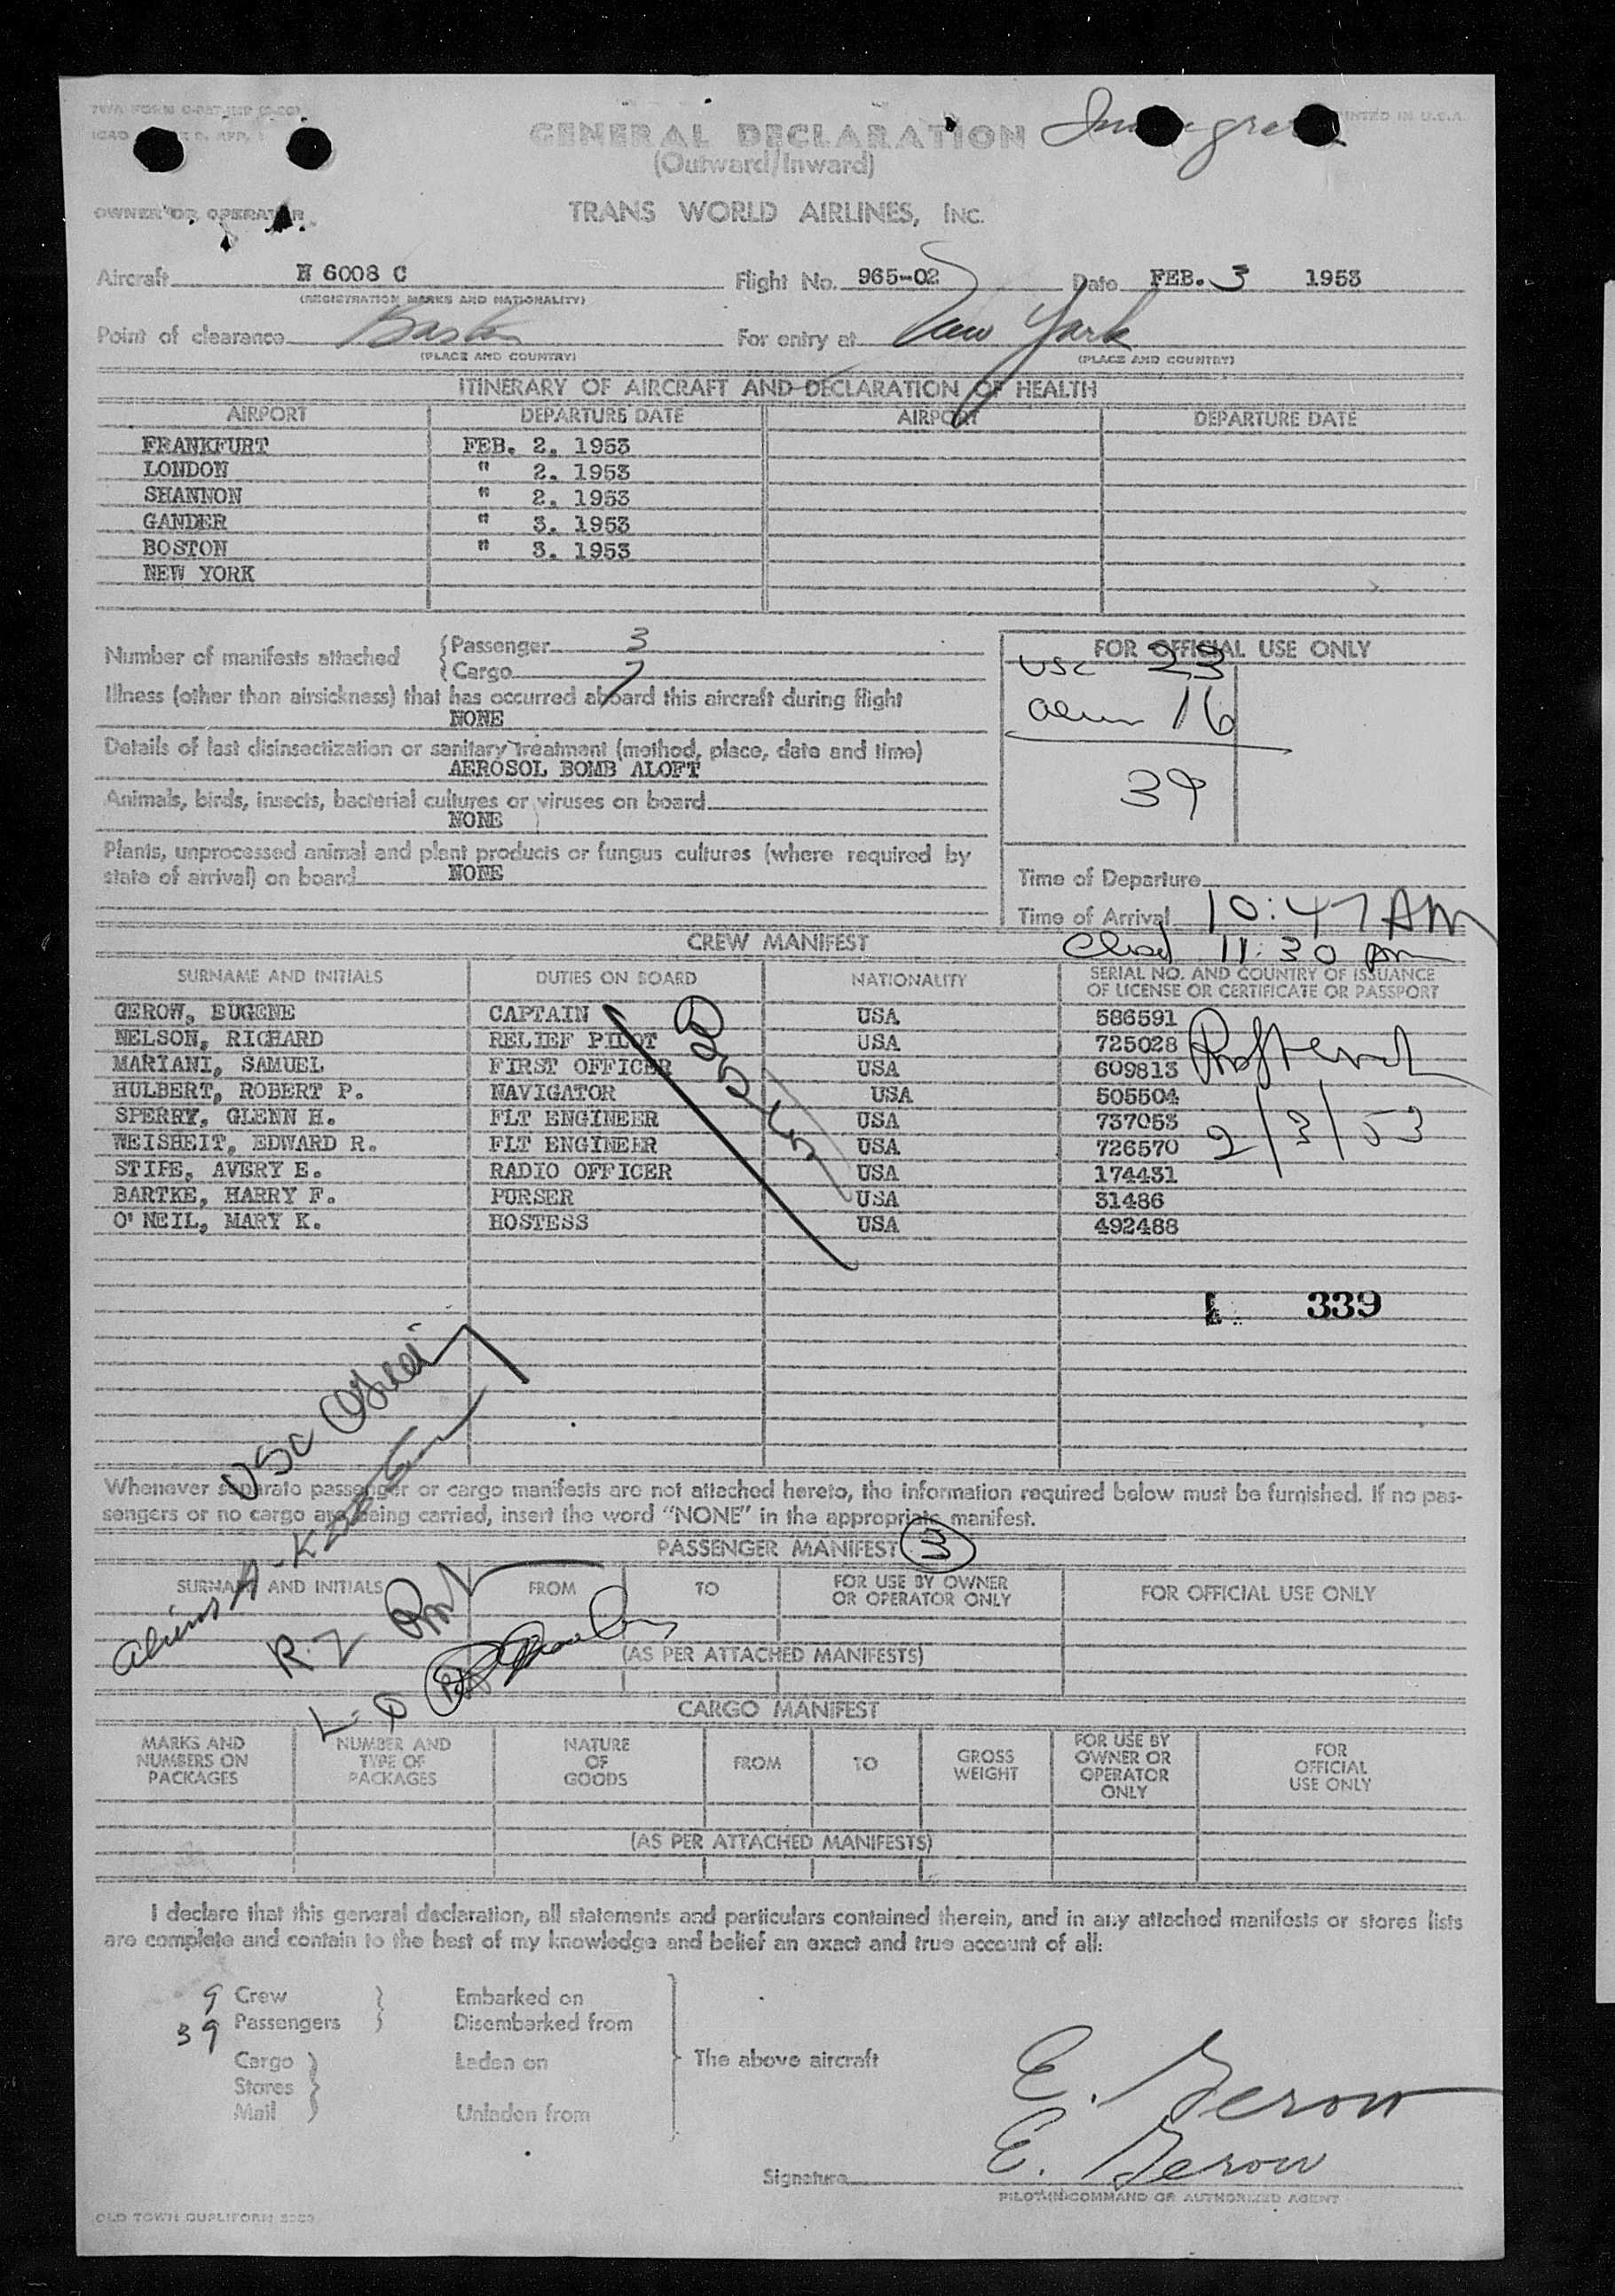 TWA FORM
ICAO
PRINTED IN U.S.A.
GENERAL DECLARATION
(Outward/Inward)
OWNER OR OPERATOR
TRANS WORLD AIRLINES, INC.
Aircraft N 6008 C Flight No. 965-02 Date FEB. 3 1953
(REGISTRATION MARKS AND NATIONALITY)
Point of clearance Boston For entry at New York
(PLACE AND COUNTRY) (PLACE AND COUNTRY)
ITINERARY OF AIRCRAFT AND DECLARATION OF HEALTH
AIRPORT DEPARTURE DATE AIRPORT DEPARTURE DATE
FRANKFURT FEB. 2. 1953
LONDON " 2. 1953
SHANNON " 2. 1953
GANDER " 3. 1953
BOSTON " 3. 1953
NEW YORK
Number of manifests attached { Passenger 3
{ Cargo 7
FOR OFFICIAL USE ONLY
USC 23
alien 16
39
Illness (other than airsickness) that has occurred aboard this aircraft during flight
NONE
Details of last disinsectization or sanitary treatment (method, place, date and time)
AEROSOL BOMB ALOFT
Animals, birds, insects, bacterial cultures or viruses on board
NONE
Plants, unprocessed animal and plant products or fungus cultures (where required by
state of arrival) on board NONE
Time of Departure
Time of Arrival 10:47 AM
CREW MANIFEST
Closed 11:30 am
SURNAME AND INITIALS DUTIES ON BOARD NATIONALITY SERIAL NO. AND COUNTRY OF ISSUANCE
OF LICENSE OR CERTIFICATE OR PASSPORT
GEROW, EUGENE CAPTAIN USA 586591
NELSON, RICHARD RELIEF PILOT USA 725028
MARIANI, SAMUEL FIRST OFFICER USA 609813
HULBERT, ROBERT P. NAVIGATOR USA 505504
SPERRY, GLENN H. FLT ENGINEER USA 737053
WEISHEIT, EDWARD R. FLT ENGINEER USA 726570 2/3/53
STIPE, AVERY E. RADIO OFFICER USA 174431
BARTKE, HARRY F. PURSER USA 31486
O'NEIL, MARY K. HOSTESS USA 492488
339
USC
Whenever separate passenger or cargo manifests are not attached hereto, the information required below must be furnished. If no pas-
sengers or no cargo are being carried, insert the word "NONE" in the appropriate manifest.
PASSENGER MANIFEST 3
SURNAME AND INITIALS FROM TO FOR USE BY OWNER
OR OPERATOR ONLY FOR OFFICIAL USE ONLY
Aliens A-K
R-Z
L-Q
(AS PER ATTACHED MANIFESTS)
CARGO MANIFEST
MARKS AND
NUMBERS ON
PACKAGES
NUMBER AND
TYPE OF
PACKAGES
NATURE
OF
GOODS
FROM
TO
GROSS
WEIGHT
FOR USE BY
OWNER OR
OPERATOR
ONLY
FOR
OFFICIAL
USE ONLY
(AS PER ATTACHED MANIFESTS)
I declare that this general declaration, all statements and particulars contained therein, and in any attached manifests or stores lists
are complete and contain to the best of my knowledge and belief an exact and true account of all:
9 Crew } Embarked on
39 Passengers } Disembarked from
Cargo } Laden on } The above aircraft
Stores }
Mail } Unladen from
E. Gerow
E. Gerow
Signature
PILOT-IN-COMMAND OR AUTHORIZED AGENT
OLD TOWN DUPLIFORM